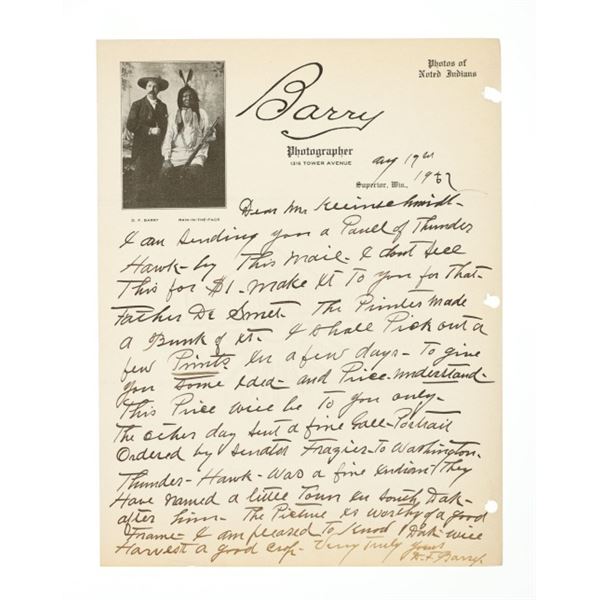 Photos of
Noted Indians
Barry
Photographer
1316 TOWER AVENUE
Superior, Wis.,
D. F. BARRY RAIN-IN-THE-FACE
Dear Mr Kleinschmidt-
I am sending you a Panel of Thunder
Hawk- by This Mail- I dont sell
This for $1- make it To you for That-
Father De Smet- The Printer made
a Bunk of it- I shall Pick out a
few Prints in a few days- To give
you some idea- and Price- understand-
This Price will be To you only-
The other day sent a fine Gall- Portrait
Ordered by Senator Frazier- To Washington-
Thunder- Hawk- was a fine Indian They
Have named a little Town in South Dak-
after him- The Picture is worthy of a good
Frame- I am pleased To Know Dak- will
Harvest a good crop- Very Truly yours
D. F. Barry